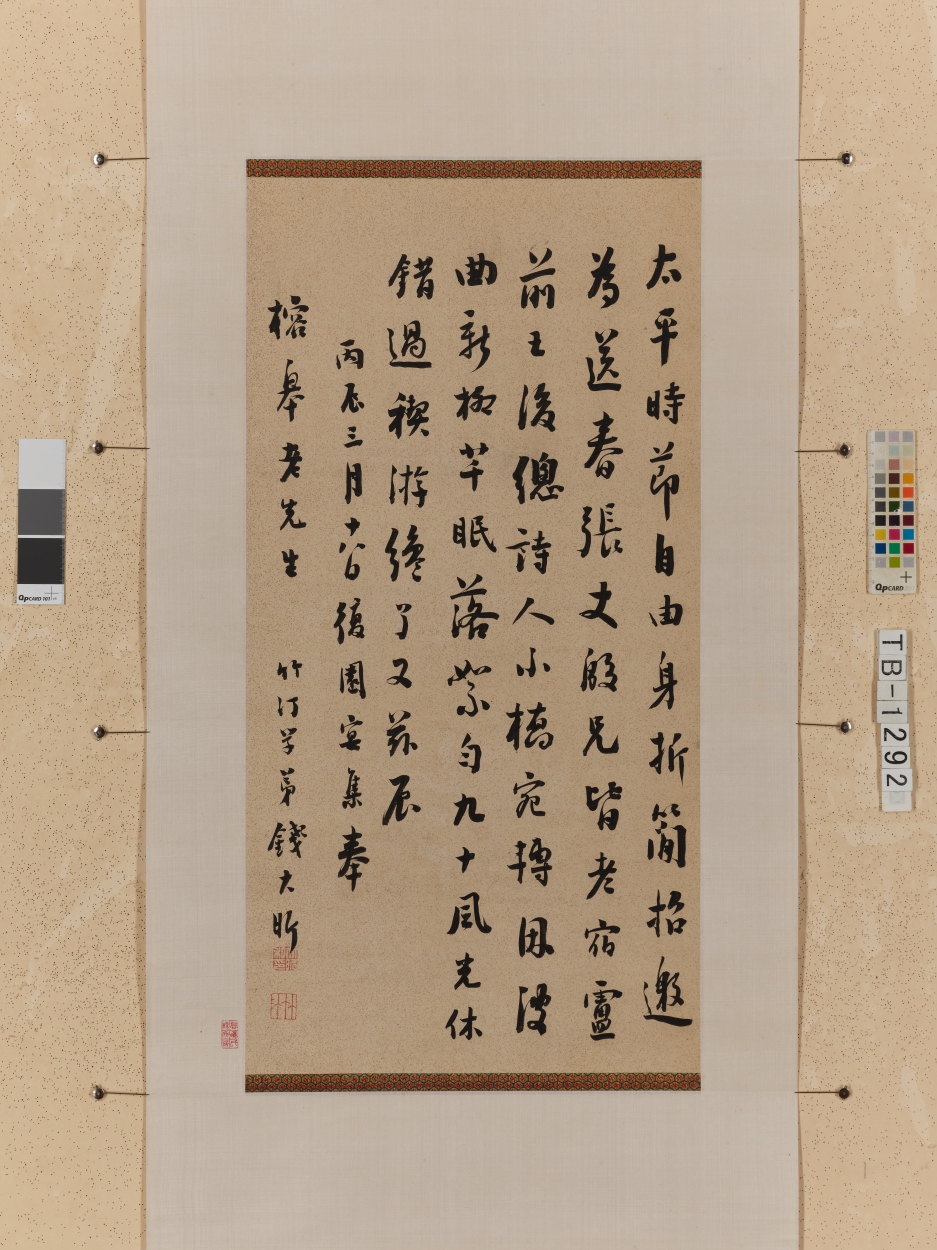 太平時節自由身折簡招邀
為送春張丈殷兄皆老宿盧
前王後總詩人小橋宛轉因波
曲新柳芊眠落絮勻九十風光休
錯過禊游纔了又茲辰
丙辰三月十八日復園宴集奉
榕皋老先生
竹汀學弟錢大昕
QPCARD 101
QPCARD
TB-1292